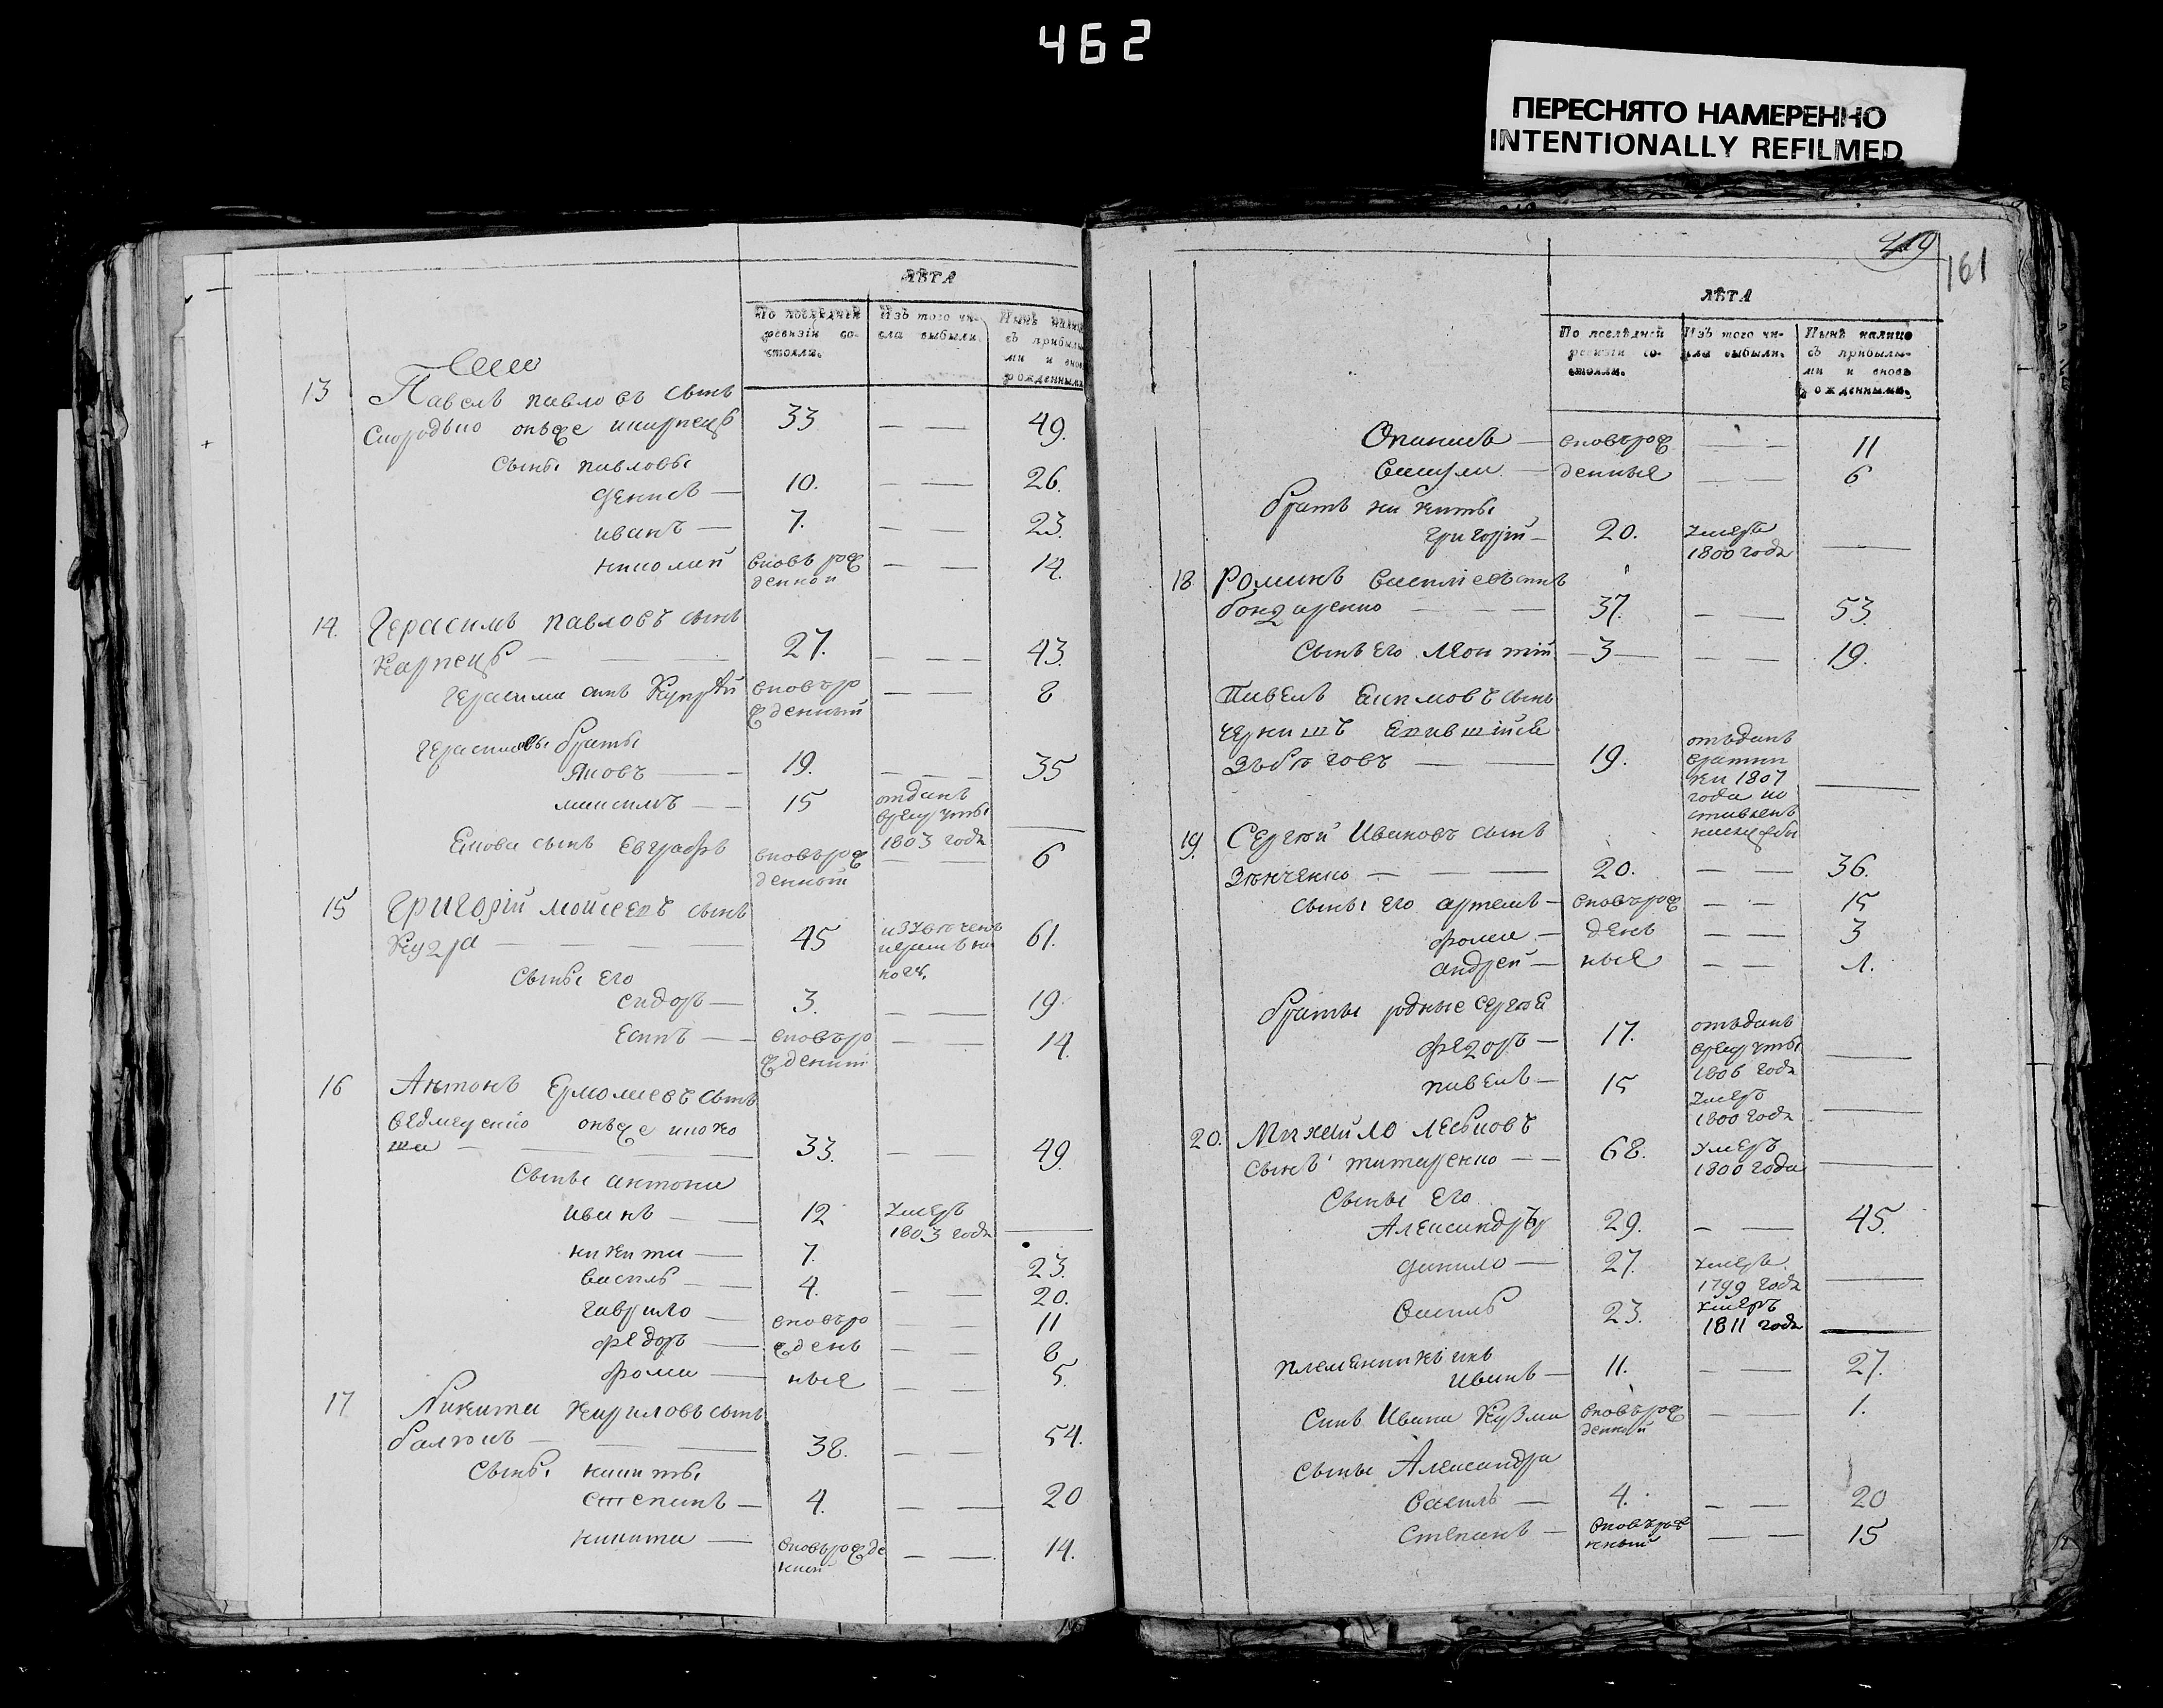 462
ПЕРЕСНЯТО НАМЕРЕННО
INTENTIONALLY REFILMED
ЛѢТА
По послѣдней ревизіи состояли.
Изъ того числа выбыли.
Нынѣ налицо съ прибылыми и вновь рожденными.
13 Павелъ павловъ сынъ
онъже карпецъ 33 — — 49.
Сыны павловы
денисъ — 10. — — 26.
иванъ — 7. — — 23.
николай вновь рожденной — — 14.
14. Герасимъ павловъ сынъ
Карпецъ — — 27. — — — 43.
Герасима сынъ вновъро
жденный — — 8
Герасимовы браты
Яковъ — — 19. — — — 35
максимъ — — 15 отданъ
врекруты
1803 года —
Екова сынъ Евграфъ вновърож
денный — — 6
15 Григорій моисеевъ сынъ
— — — 45 61.
Сыны его
сидоръ — 3. — — 19.
Есипъ — — вновъро
жденный — — 14.
16 Антонъ Ермолаевъ сынъ
онъже
— — — 33. — — 49.
Сыны антона
иванъ — — 12 умеръ
1803 года —
никита — 7. 23.
василь — — 4. — — 20.
гаврило — вновъро — — 11
федоръ — ждень — — 8
фома — ные — — 5.
17 Никита Кириловъ сынъ
— — 38. — — 54.
Сыны никиты
степанъ — 4. — — 20
никита — вновърожде
нной — — 14.
419
161
ЛѢТА
По послѣдней ревизіи состояли.
Изъ того числа выбыли.
Нынѣ налицо съ прибылыми и вновь рожденными.
— вновърож — — 11
— денные — — 6
братъ никиты
григорій — 20. умеръ
1800 года —
18 Романъ сынъ
бондаренко — — — 37. — — 53.
Сынъ его Леонтій — 3 — — — 19.
Павелъ сынъ
чернишъ
— — 19. отъданъ
1807
года
19. Сергѣй Ивановъ сынъ
Зѣнченко — — — 20. — — 36.
сыны его артемъ — вновърож — — 15
фома — ден — — 3
андрей — ные — — 1.
браты родные Сергѣя
федоръ — 17. отъданъ
врекруты
1806 года —
павелъ — 15 умеръ
1800 года —
20. Михайло
сынъ титаренко — — 68. умеръ
1800 года —
Сыны его
Александръ 29. — — 45.
данило — 27. умеръ
1799 года —
Василь 23. умеръ
1811 года —
племенникъ ихъ
Иванъ — 11. — — 27.
Синъ Ивана Кузма вновърож
денный — — 1.
Сыны Александра
василь — 4. — — 20
Степанъ — вновърож
нный — — 15